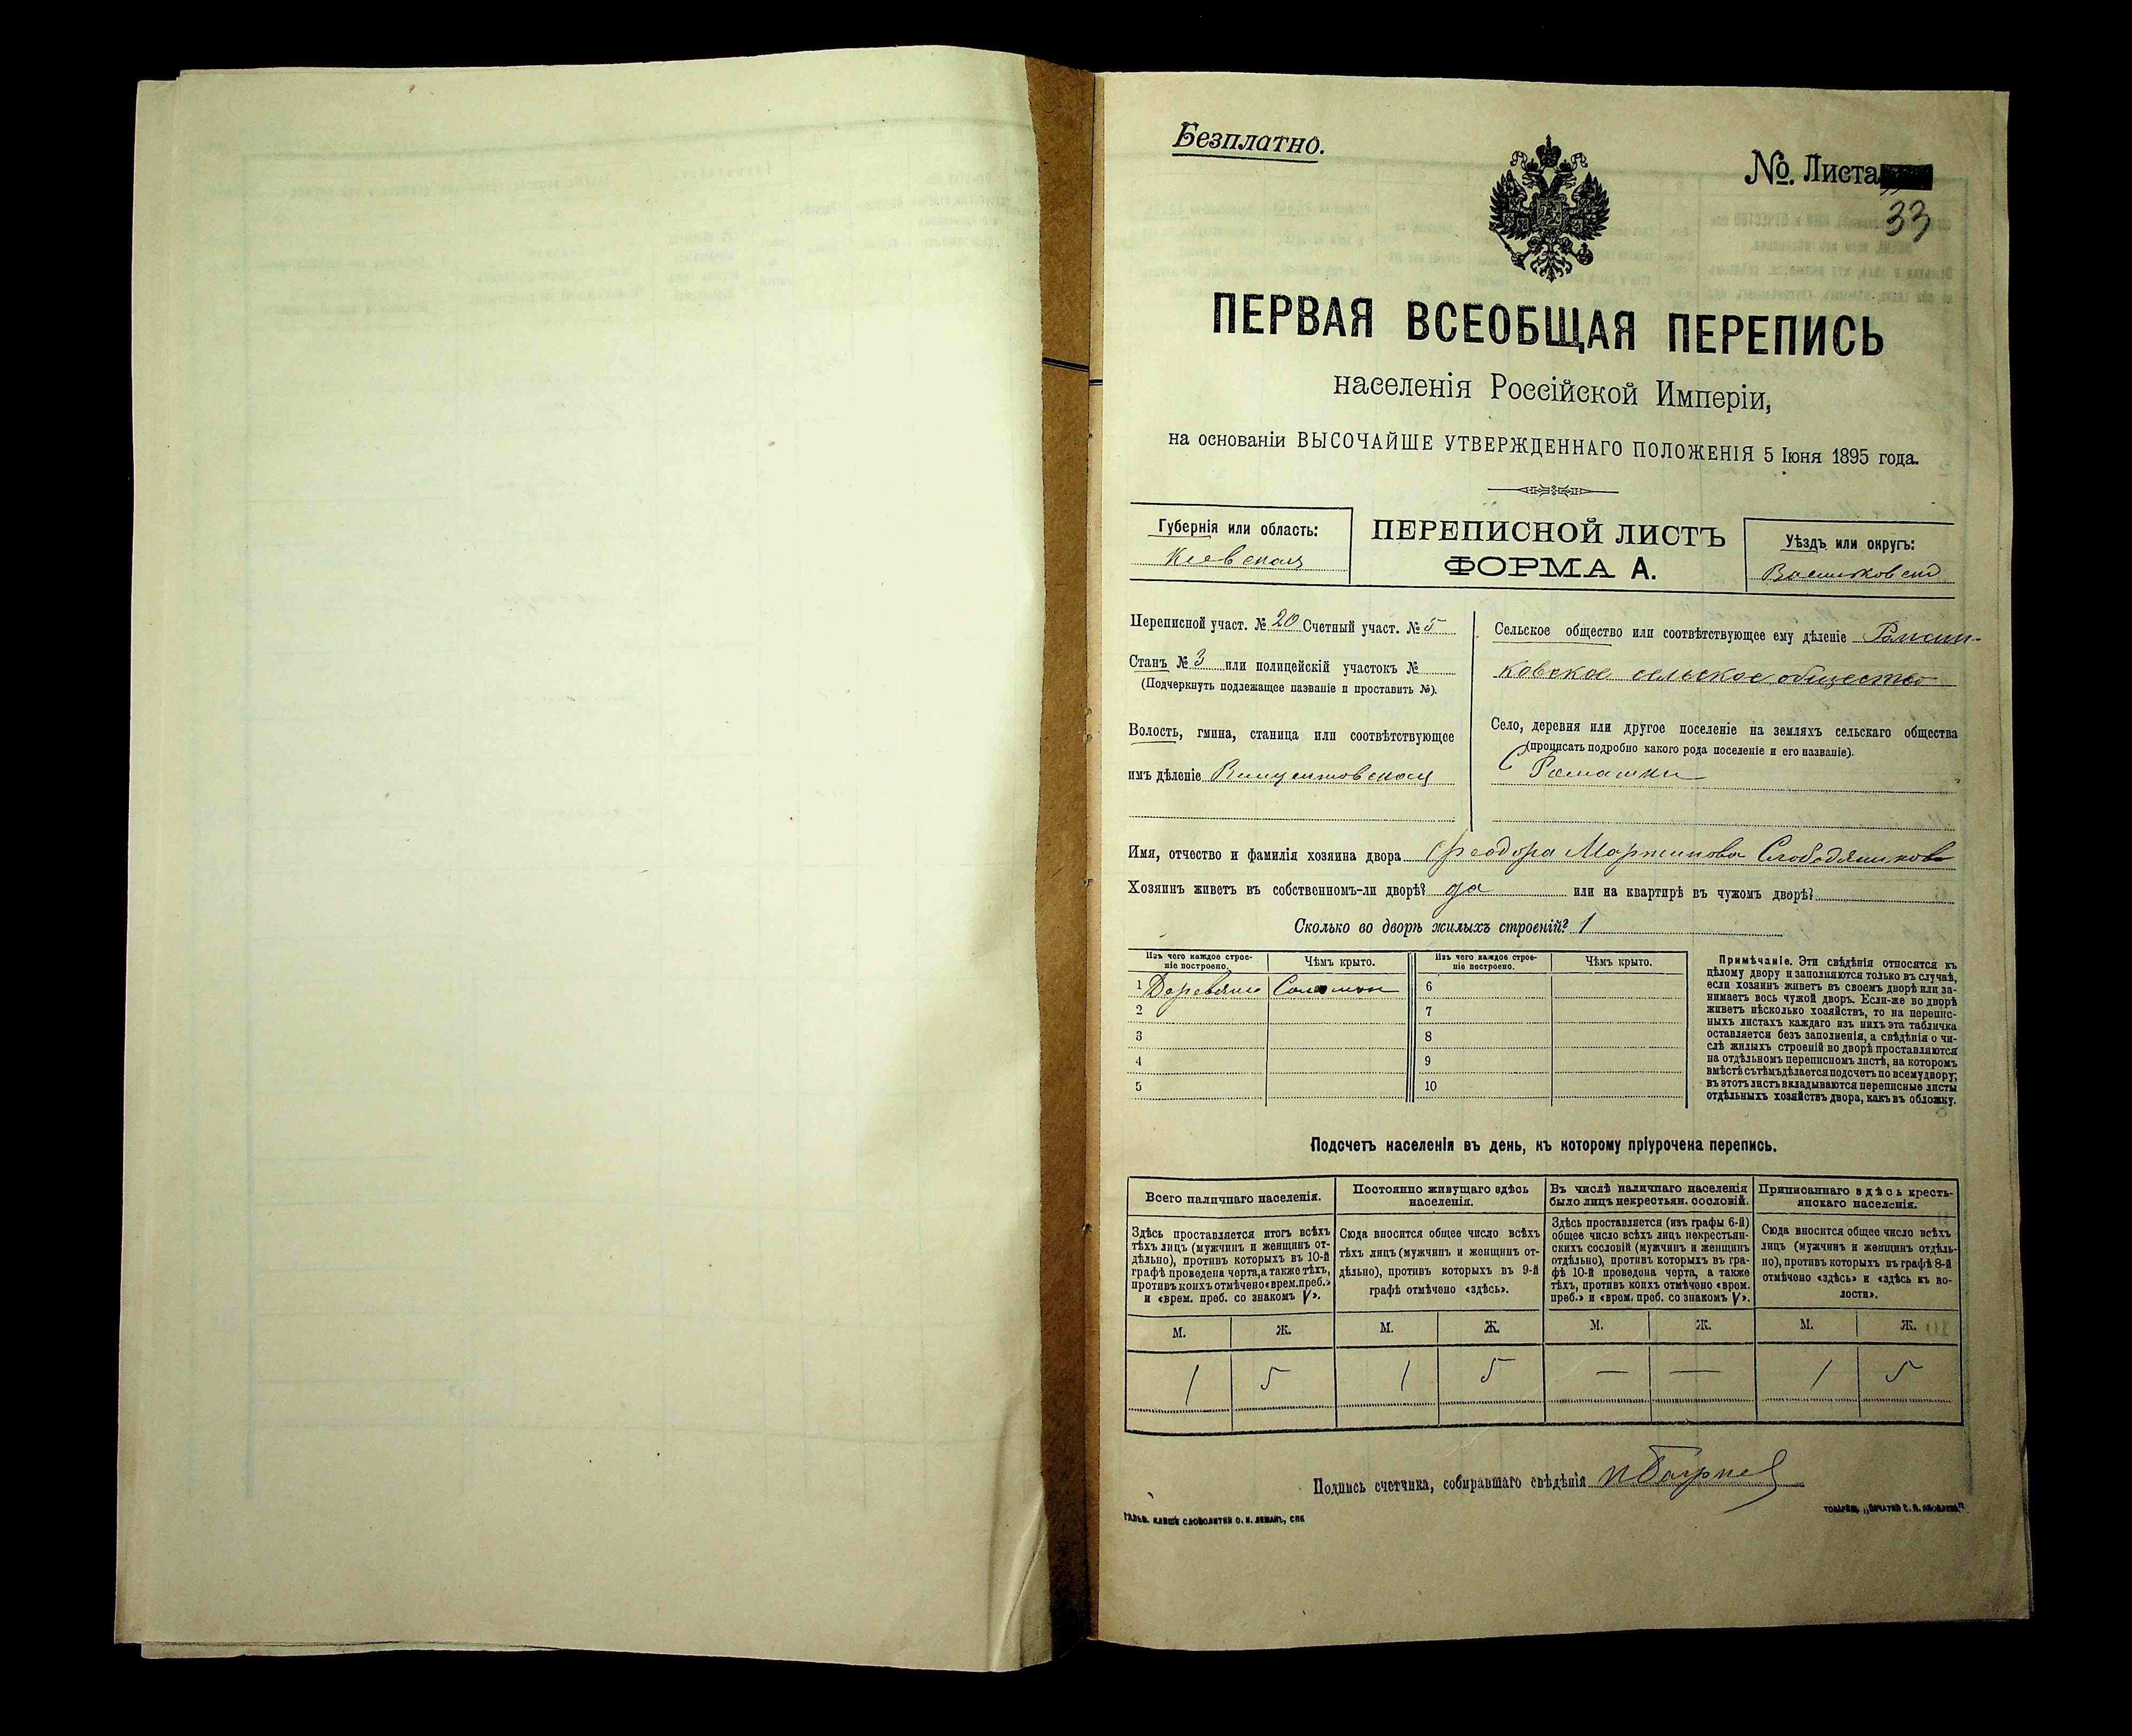 Безплатно.
№. Листа
33
ПЕРВАЯ ВСЕОБЩАЯ ПЕРЕПИСЬ
населенія Россійской Имперіи,
на основаніи ВЫСОЧАЙШЕ УТВЕРЖДЕННАГО ПОЛОЖЕНІЯ 5 Іюня 1895 года.
Губернія или область:
Кіевская
ПЕРЕПИСНОЙ ЛИСТЪ
ФОРМА А.
Уѣздъ или округъ:
Переписной участ. № 20 Счетный участ. № 5
Станъ № 3 или полицейскій участокъ №
(Подчеркнуть подлежащее названіе и проставить №).
Волость, гмина, станица или соотвѣтствующее
имъ дѣленіе
Сельское общество или соотвѣтствующее ему дѣленіе Ромаш-
ковское сельское общество
Село, деревня или другое поселеніе на земляхъ сельскаго общества
(прописать подробно какого рода поселеніе и его названіе).
С Ромашки
Имя, отчество и фамилія хозяина двора Феодора Мартинова
Хозяинъ живетъ въ собственномъ-ли дворѣ? да или на квартирѣ въ чужомъ дворѣ?
Сколько во дворѣ жилыхъ строеній? 1
Изъ чего каждое строе-
ніе построено.
Чѣмъ крыто.
Изъ чего каждое строе-
ніе построено.
Чѣмъ крыто.
1 6
2 7
3 8
4 9
5 10
Примѣчаніе. Эти свѣдѣнія относятся къ
цѣлому двору и заполняются только въ случаѣ,
если хозяинъ живетъ въ своемъ дворѣ или за-
нимаетъ весь чужой дворъ. Если-же во дворѣ
живетъ нѣсколько хозяйствъ, то на перепис-
ныхъ листахъ каждаго изъ нихъ эта табличка
оставляется безъ заполненія, а свѣдѣнія о чи-
слѣ жилыхъ строеній во дворѣ проставляются
на отдѣльномъ переписномъ листѣ, на которомъ
вмѣстѣ съ тѣмъ дѣлается подсчетъ по всему двору;
въ этотъ листъ вкладываются переписные листы
отдѣльныхъ хозяйствъ двора, какъ въ обложку.
Подсчетъ населенія въ день, къ которому пріурочена перепись.
Всего наличнаго населенія.
Здѣсь проставляется итогъ всѣхъ
тѣхъ лицъ (мужчинъ и женщинъ от-
дѣльно), противъ которыхъ въ 10-й
графѣ проведена черта, а также тѣхъ,
противъ коихъ отмѣчено «врем. преб.»
и «врем. преб. со знакомъ V».
Постоянно живущаго здѣсь
населенія.
Сюда вносится общее число всѣхъ
тѣхъ лицъ (мужчинъ и женщинъ от-
дѣльно), противъ которыхъ въ 9-й
графѣ отмѣчено «здѣсь».
Въ числѣ наличнаго населенія
было лицъ некрестьян. сословій.
Здѣсь проставляется (изъ графы 6-й)
общее число всѣхъ лицъ некрестьян-
скихъ сословій (мужчинъ и женщинъ
отдѣльно), противъ которыхъ въ гра-
фѣ 10-й проведена черта, а также
тѣхъ, противъ коихъ отмѣчено «врем.
преб.» и «врем. преб. со знакомъ V».
Приписаннаго здѣсь кресть-
янскаго населенія.
Сюда вносится общее число всѣхъ
лицъ (мужчинъ и женщинъ отдѣль-
но), противъ которыхъ въ графѣ 8-й
отмѣчено «здѣсь» и «здѣсь къ во-
лости».
М. Ж. М. Ж. М. Ж. М. Ж.
1 5 1 5 — — 1 5
Подпись счетчика, собиравшаго свѣдѣнія
ГАЛЬВ. КЛИШЕ СЛОВОЛИТНИ О. И. ЛЕМАНЪ, СПБ
ТОВАРИЩ. „ПЕЧАТНЯ С. П. ЯКОВЛЕВА".